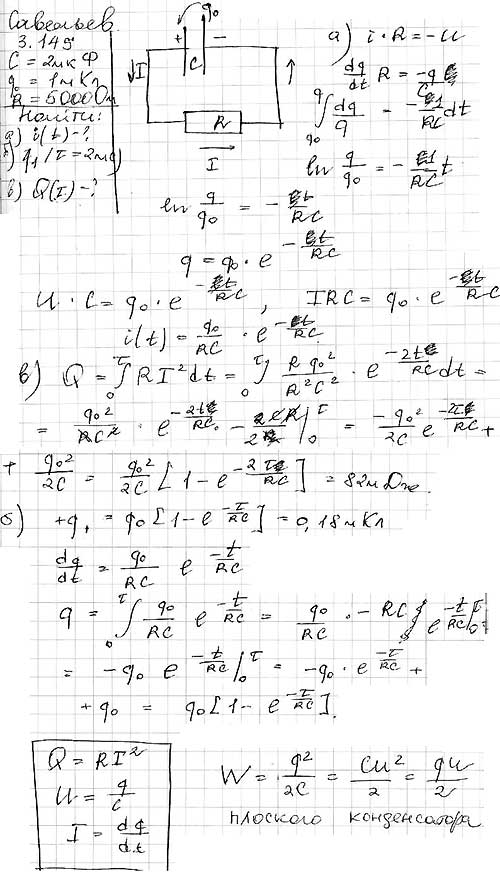 Савельев
3.149
C = 2мкФ
q₀ = 1мКл
R = 5000Ом
Найти:
а) i(t) - ?
б) q₁ / τ = 2мс
в) Q(I) - ?
q₀
+ −
C
I
R
I
а) i · R = −U
dq/dt R = −q/C
∫ dq/q = −1/RC dt
ln q/q₀ = −1/RC t
ln q/q₀ = −t/RC
q = q₀ · e^(−t/RC)
U · C = q₀ · e^(−t/RC) , IRC = q₀ · e^(−t/RC)
i(t) = q₀/RC · e^(−t/RC)
в) Q = ₀∫^τ RI² dt = ₀∫^τ R q₀²/R²C² · e^(−2t/RC) dt =
= q₀²/RC² · e^(−2t/RC) · −RC/2 |₀^τ = −q₀²/2C e^(−2τ/RC) +
+ q₀²/2C = q₀²/2C [1 − e^(−2τ/RC)] = 82мДж.
б) +q₁ = q₀ [1 − e^(−τ/RC)] = 0,18мКл
dq/dt = q₀/RC e^(−t/RC)
q = ₀∫^τ q₀/RC e^(−t/RC) = q₀/RC · −RC ∫ e^(−t/RC) |₀^τ =
= −q₀ e^(−t/RC) |₀^τ = −q₀ · e^(−τ/RC) +
+ q₀ = q₀ [1 − e^(−τ/RC)].
Q = RI²
U = q/C
I = dq/dt
W = q²/2C = CU²/2 = qU/2
плоского конденсатора